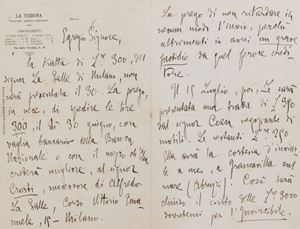 LA TRIBUNA
Egregio Signore,
la tratta di L.re 300, del
signor La Salle di Milano, non
sarà presentata il 30. La prego,
in vece, di spedire le lire
300, il dì 30 giugno, con
vaglia bancario della Banca
Nazionale o con il mezzo ch'Ella
crederà migliore, al signor
Crosti, successore di Alfredo
La Salle, Corso Vittorio Ema
nuele, 15 - Milano.
La prego di non ritardare in
nessun modo l'invio, perché
altrimenti io avrei un grave
fastidio da quel feroce credi
tore.
Il 15 Luglio, poi, Le sarà
presentata una tratta di L. 350
dal signor Coen negoziante di
mobili. Le restanti L. 350
Ella avrà la cortesia d'inviar
le a me, a Francavilla al
mare (Abruzzi). Così sarà
chiuso il conto delle L. 3000
dovutemi per l'Invincibile.